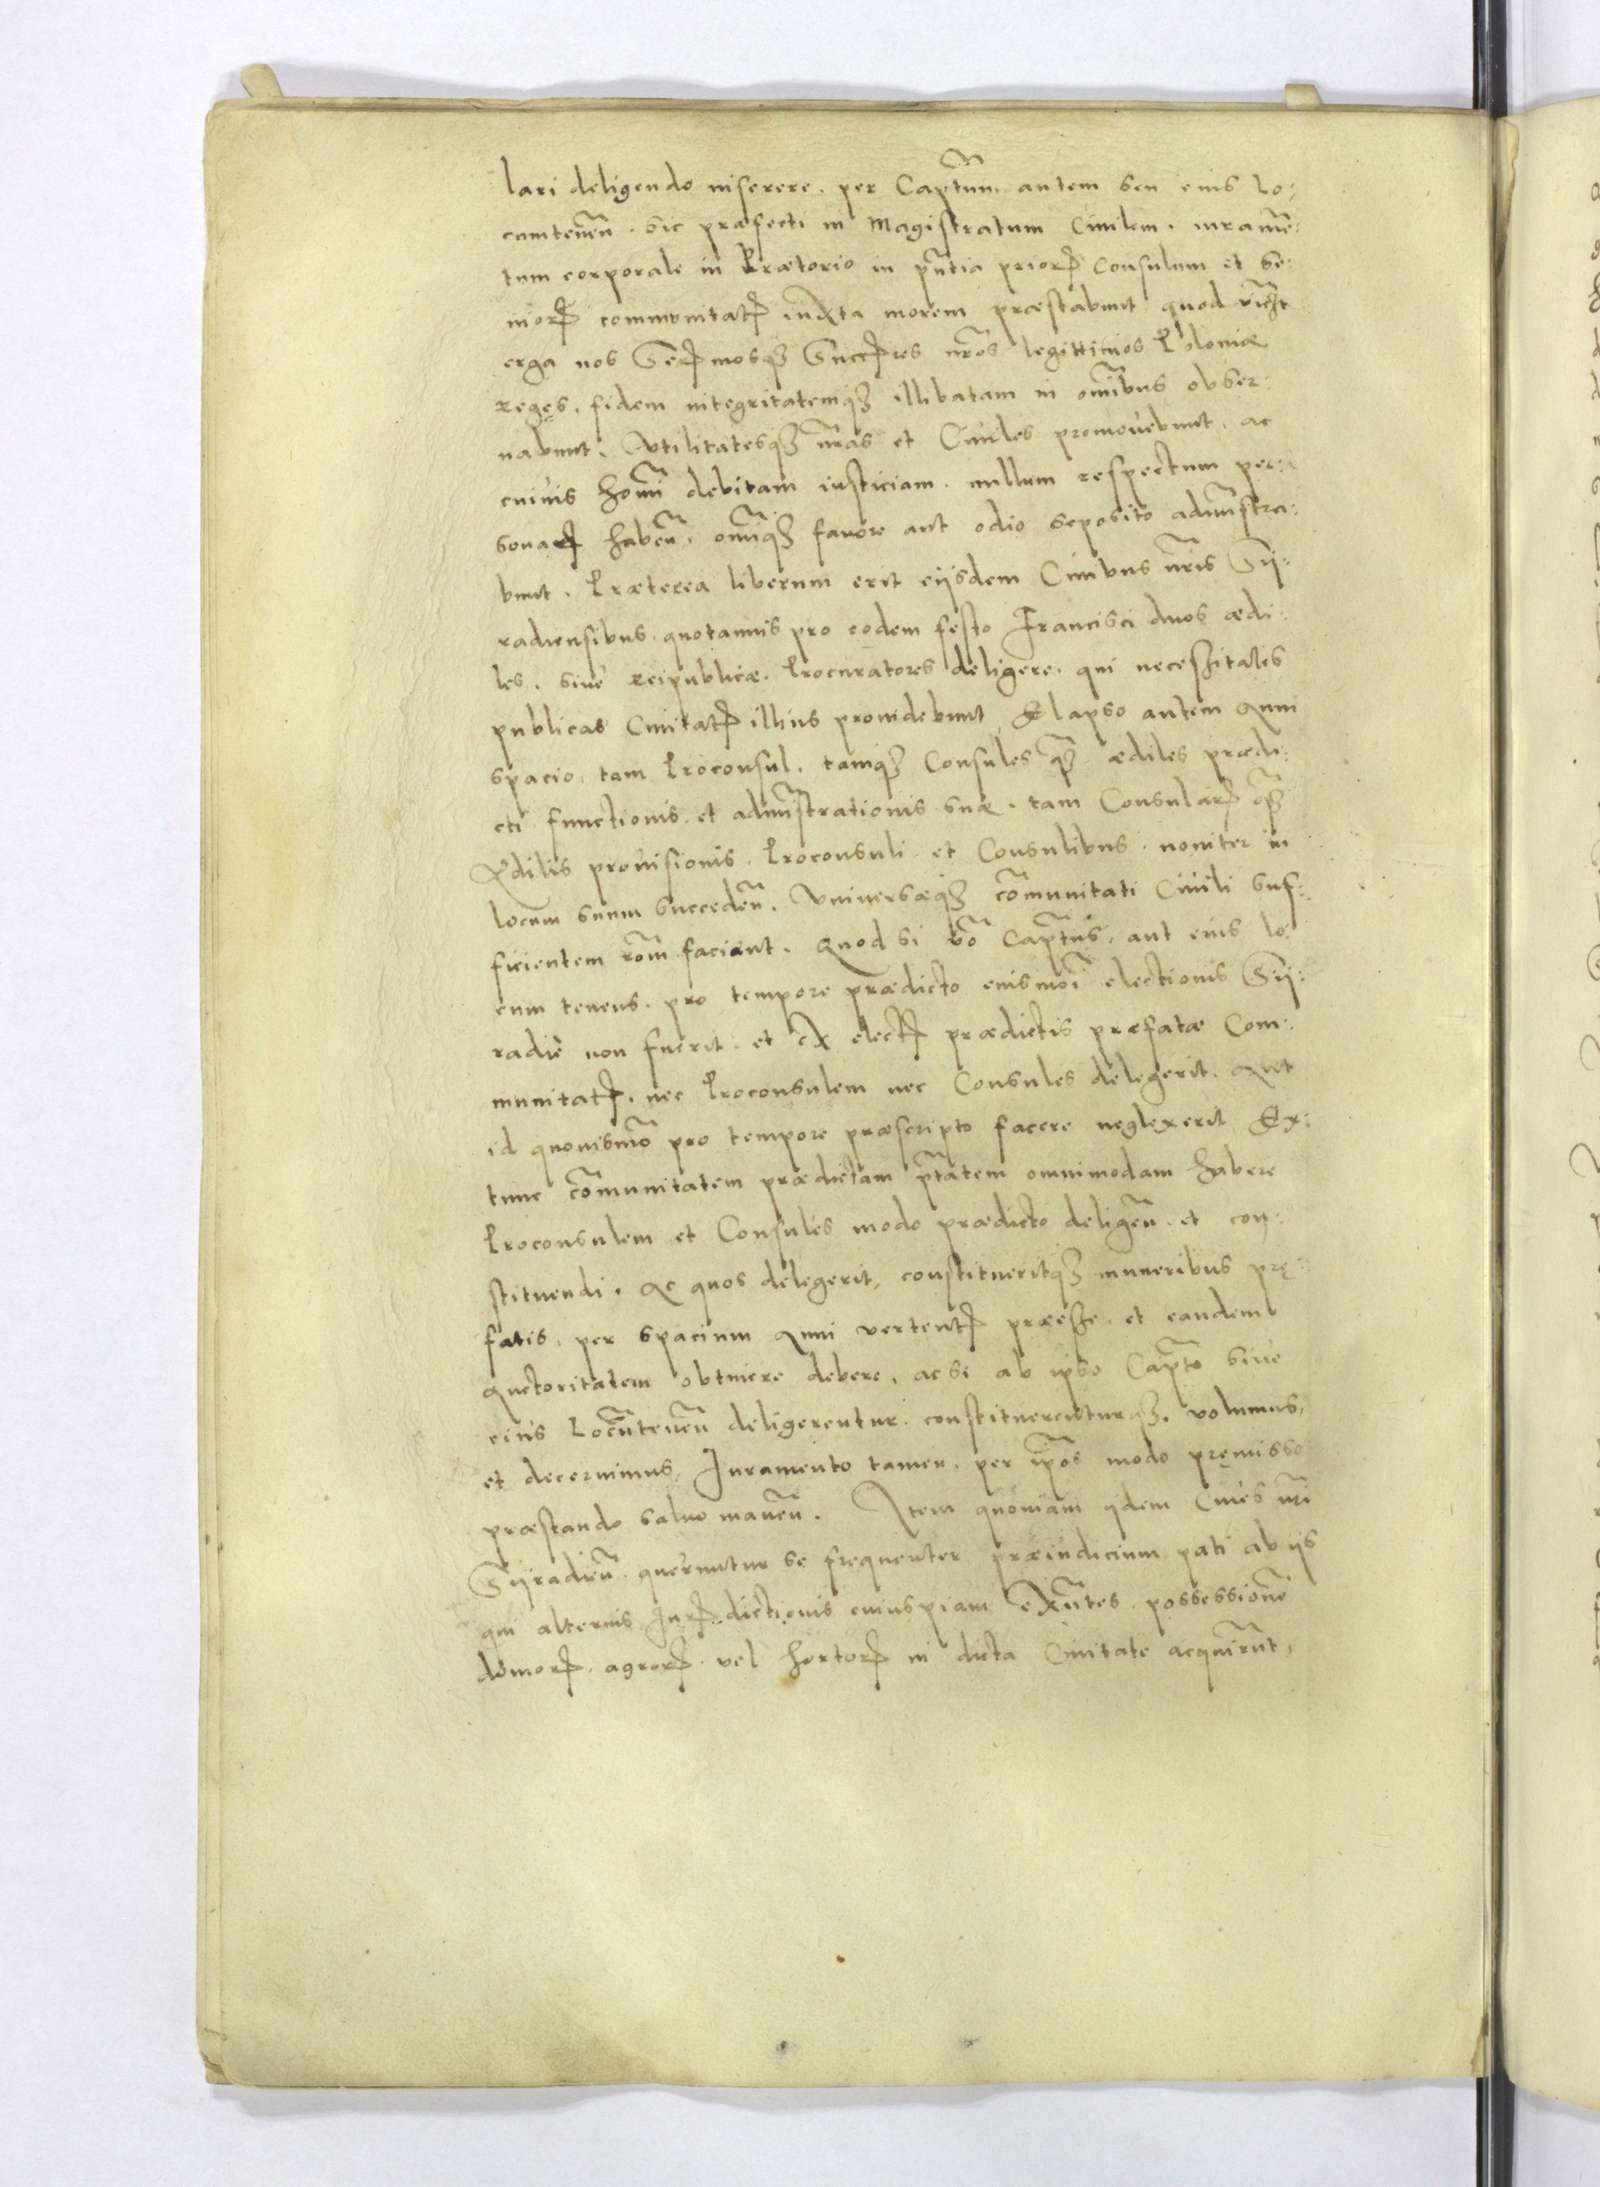 lari deligendo inserere. per Captum̃ autem seu eius lo:
cumteneñ. sic præfecti in Magistratum Ciuilem. iuramẽ:
tum corporale in Prætorio in pñtia priorꝝ consulum et se:
niorꝝ communitatꝭ iuxta morem præstabunt quod
erga nos Serꝭmosqꝫ Succꝭres nr̃os legittimos Poloniæ
reges. fidem integritatemqꝫ illibatam in om̃ibus obser:
uabunt. Vtilitatesqꝫ nr̃as et Ciuiles promouebunt. ac
cuiuis homĩ debitam iusticiam. nullum respectum per:
sonaꝝ habeñ. omĩqꝫ fauore aut odio seposito admĩstra:
bunt. Præterea liberum erit eijsdem Ciuibus nr̃is Sij:
radiensibus. quotannis pro eodem festo Francisci duos ædi:
les. siue reipublicæ. Procuratores deligere. qui necessitates
publicas Ciuitatꝭ illius prouidebunt. Elapso autem Anni
spacio. tam Proconsul. tamqꝫ Consules qꝫ ædiles prædi:
cti functionis. et admĩstrationis suæ. tam Consularꝭ qꝫ
Ædilis prouisionis. Proconsuli et Consulibus. nouiter in
locum suum succedeñ. Vniuersæqꝫ cõmunitati Ciuili suf:
ficientem rõm faciant. Quod si võ Captus̃. aut eius lo:
cum tenens. pro tempore prædicto eiusmõi electionis Sij:
radię non fuerit. et ex electꝭ prædictis præfatæ Com:
munitatꝭ. nec Proconsulem nec Consules delegerit. Aut
id quouismõ pro tempore præscripto facere neglexerit. Ex:
tunc cõmunitatem prædictam ptãtem omnimodam habere
Proconsulem et Consules modo prædicto deligeñ. et con:
stituendi. Ac quos delegerit, constitueritqꝫ muneribus prę:
fatis. per spacium Anni vertentꝭ præesse. et eandem
Auctoritatem obtinere debere, ac si ab ipso Capto͂ siue
eius Locũteneñ deligerentur. constituerenturqꝫ. volumus,
et decernimus, Iuramento tamen. per ip̃os modo pręmisso
præstando saluo maneñ. Item quoniam ijdem Ciues nr̃i
Sijradieñ. queruntur se frequenter præiudicium pati ab ijs
qui alterius Iurꝭdictionis cuiuspiam exñtes. possessionẽ
domorꝝ. agrorꝝ. vel hortorꝝ in dicta Ciuitate acquirũt,